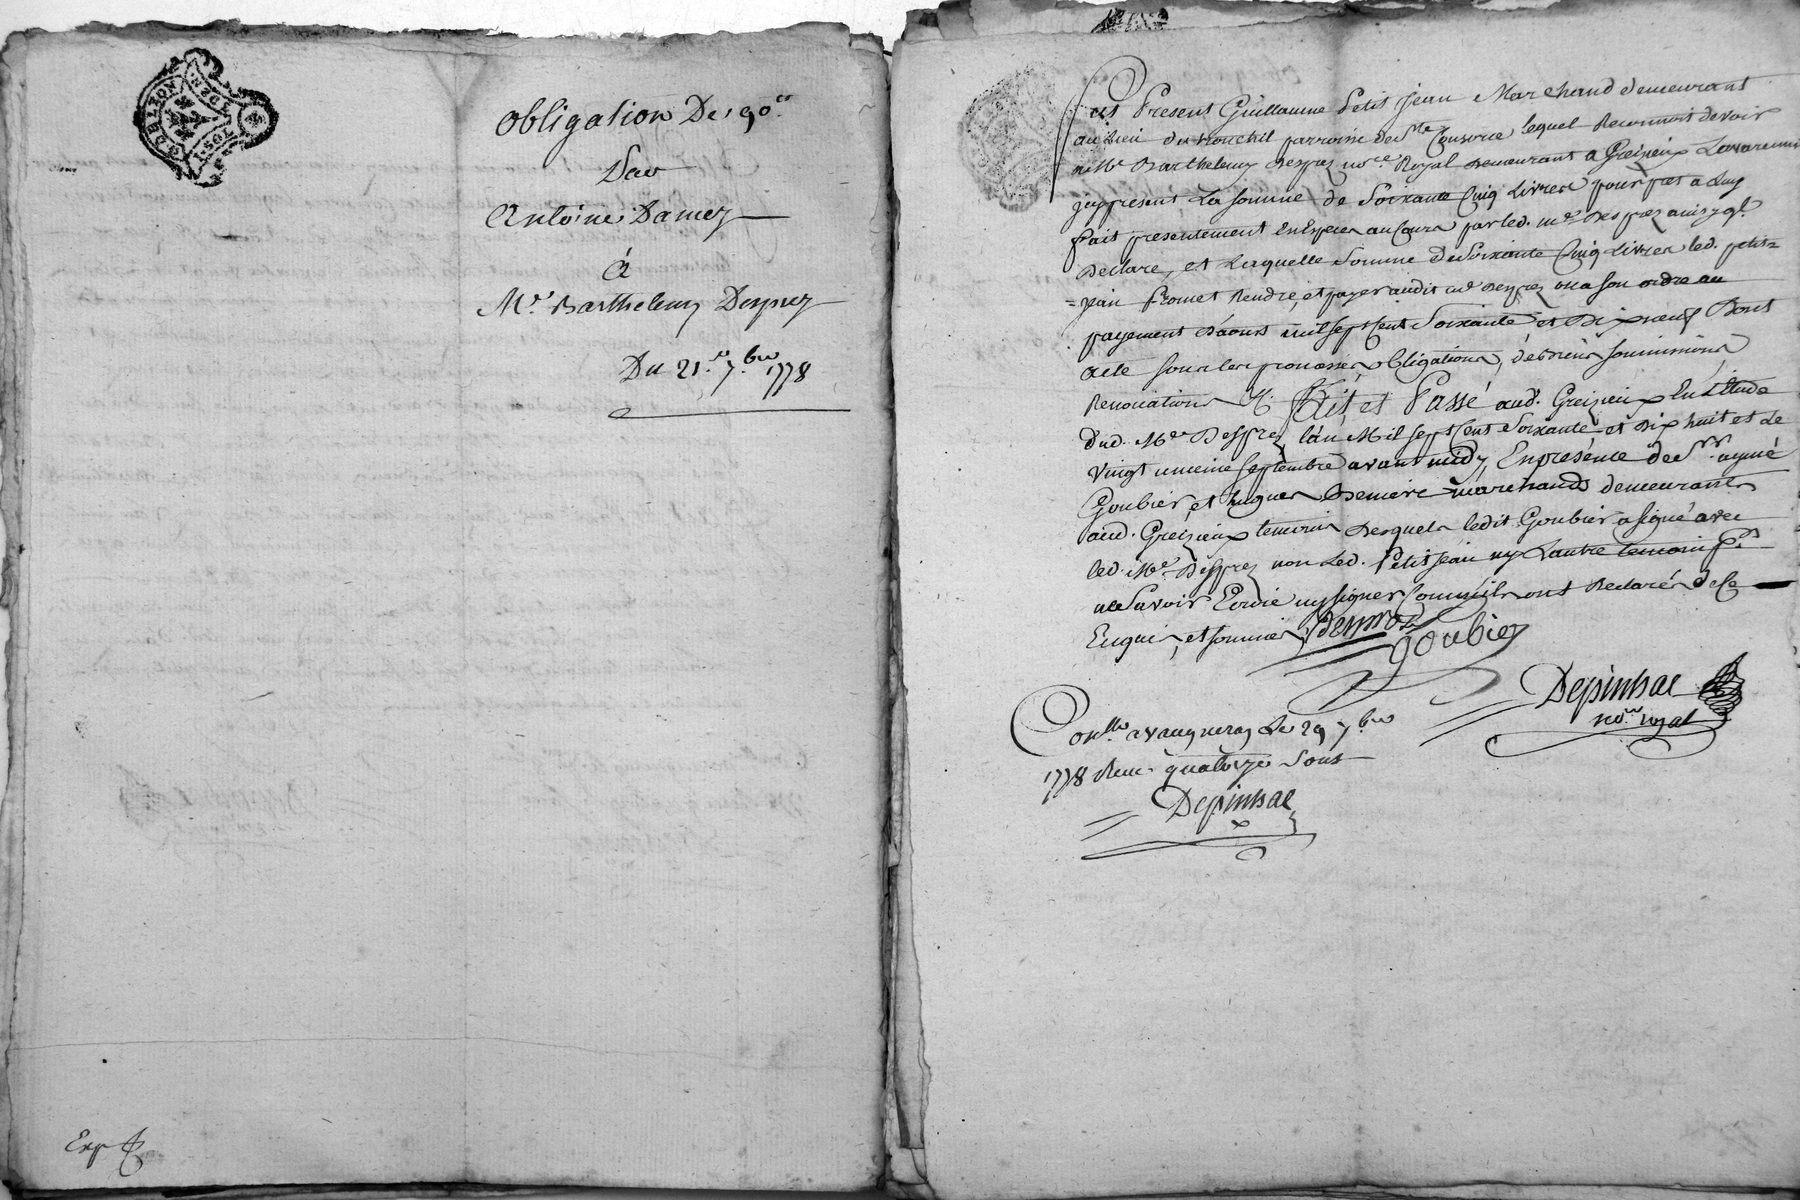 obligation De 90.ᵗᵗ
Par
Antoine Damez
à
Mᵉ. Barthelemy Desprez
Du 21.ᵉ 7.ᵇʳᵉ 1778
Fut Present Guillaume Petit Jean Marchand demeurant
au Lieu du parroisse de Sᵗᵉ Consorce lequel Reconnoit devoir
a Mᵉ Barthelemy Desprez noʳᵉ Royal demeurant a Greizieux Lavarenne
icy present La somme de Soixante Cinq Livres pour pret a Luy
fait presentement en Especes au Cours par led. mᵉ Desprez ainsy ql.
Declare, et Laquelle Somme de Soixante Cinq Livres led. petit=
=jean Promet Rendre, et payer audit mᵉ Desprez ou a son ordre au
payement d'aoust mil sept Cent Soixante et Dix neuf Dont
acte sous les promesses, obligations, des biens soumissions
Renonciations &. Fait, et Passé aud. Greizieux En L'étude
dud. Mᵉ Desprez, l'an Mil sept Cent Soixante et Dix huit et Le
vingt unieme septembre avant midy, En présence de Sʳˢ. aymé
Goubier, et hugues marchands demeurants
aud. Greizieux temoins Desquels ledit Goubier a signé avec
led. Mᵉ. Desprez non Led. Petit jean ny L'autre temoin pʳ.
ne Savoir Ecrire ny signer Comme ils ont Declarés de Ce
Enquis, et sommés, Desprez
goubier
Depinhac
noʳᵉ royal
Conˡˡᵉ a vaugneray Le 29 7ᵇʳᵉ
1778 Recu quatorze Sous
Depinhac
Exp